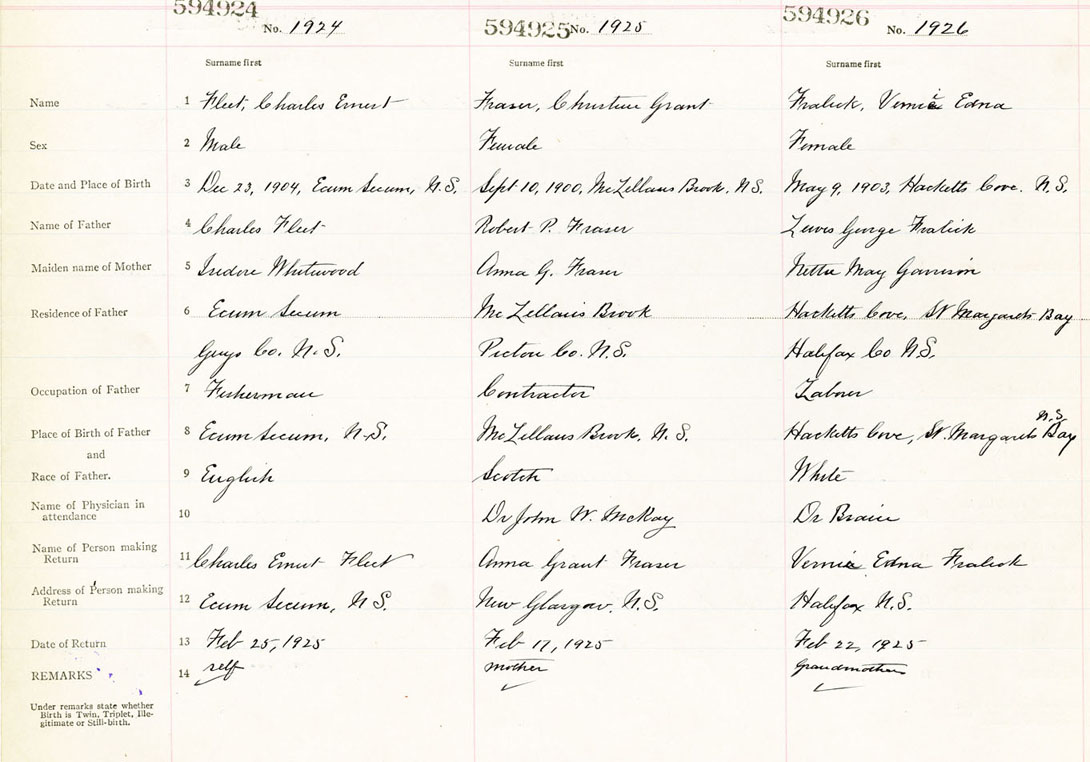 594924 No. 1924 594925 No. 1925 594926 No. 1926
Surname first Surname first Surname first
Name 1 Fleet, Charles Ernest Fraser, Christine Grant Fralick, Vernie Edna
Sex 2 Male Female Female
Date and Place of Birth 3 Dec 23, 1904, Ecum Secum, N.S. Sept 10, 1900, McLellans Brook, N.S. May 9, 1903, Hacketts Cove. N.S.
Name of Father 4 Charles Fleet Robert P. Fraser Lewis George Fralick
Maiden name of Mother 5 Isidore Whitewood Anna G. Fraser Nettie May Garrison
Residence of Father 6 Ecum Secum McLellans Brook Hacketts Cove, St Margarets Bay
Guys Co. N.S. Pictou Co. N.S. Halifax Co N.S.
Occupation of Father 7 Fisherman Contractor Laborer
N.S.
Place of Birth of Father 8 Ecum Secum, N.S. McLellans Brook, N.S. Hacketts Cove, St. Margarets Bay
and
Race of Father. 9 English Scotch White
Name of Physician in
attendance 10 Dr John W. McKay Dr Braine
Name of Person making
Return 11 Charles Ernest Fleet Anna Grant Fraser Vernie Edna Fralick
Address of Person making
Return 12 Ecum Secum, N.S. New Glasgow, N.S. Halifax N.S.
Date of Return 13 Feb 25, 1925 Feb 17, 1925 Feb 22, 1925
REMARKS 14 self mother Grandmother
Under remarks state whether
Birth is Twin, Triplet, Ille-
gitimate or Still-birth.